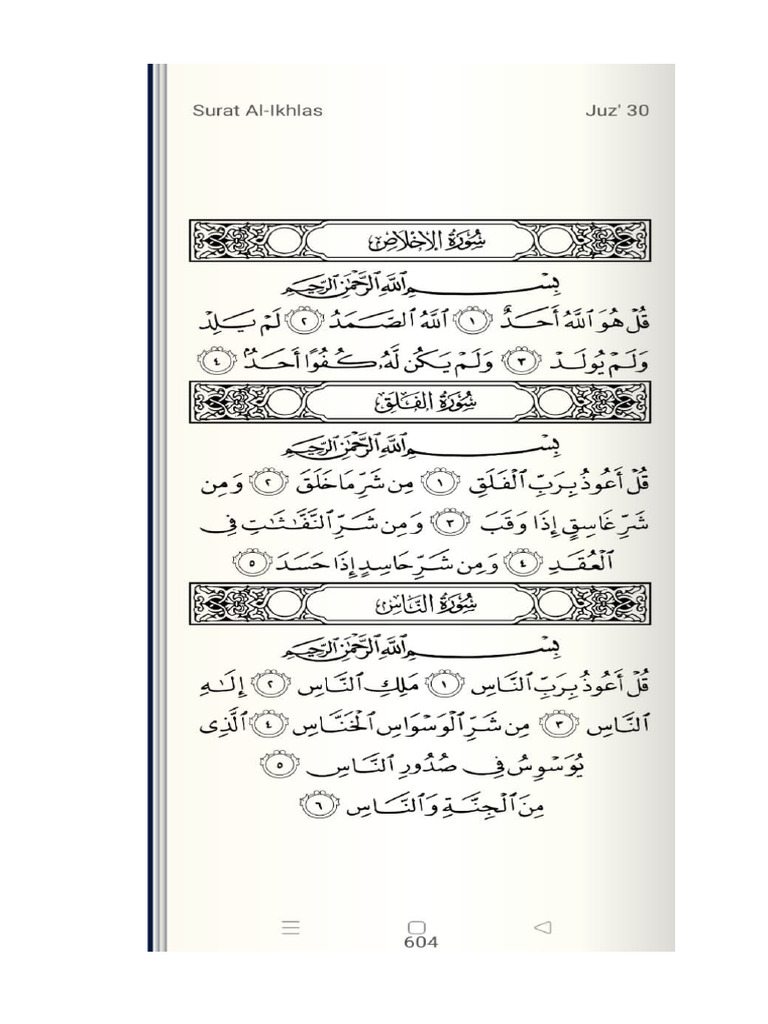 Surat Al-Ikhlas Juz' 30
سُورَةُ الإِخْلَاصِ
بِسْمِ اللَّهِ الرَّحْمَٰنِ الرَّحِيمِ
قُلْ هُوَ ٱللَّهُ أَحَدٌ ١ ٱللَّهُ ٱلصَّمَدُ ٢ لَمْ يَلِدْ
وَلَمْ يُولَدْ ٣ وَلَمْ يَكُن لَّهُۥ كُفُوًا أَحَدٌۢ ٤
سُورَةُ الفَلَقِ
بِسْمِ اللَّهِ الرَّحْمَٰنِ الرَّحِيمِ
قُلْ أَعُوذُ بِرَبِّ ٱلْفَلَقِ ١ مِن شَرِّ مَا خَلَقَ ٢ وَمِن
شَرِّ غَاسِقٍ إِذَا وَقَبَ ٣ وَمِن شَرِّ ٱلنَّفَّٰثَٰتِ فِى
ٱلْعُقَدِ ٤ وَمِن شَرِّ حَاسِدٍ إِذَا حَسَدَ ٥
سُورَةُ النَّاسِ
بِسْمِ اللَّهِ الرَّحْمَٰنِ الرَّحِيمِ
قُلْ أَعُوذُ بِرَبِّ ٱلنَّاسِ ١ مَلِكِ ٱلنَّاسِ ٢ إِلَٰهِ
ٱلنَّاسِ ٣ مِن شَرِّ ٱلْوَسْوَاسِ ٱلْخَنَّاسِ ٤ ٱلَّذِى
يُوَسْوِسُ فِى صُدُورِ ٱلنَّاسِ ٥
مِنَ ٱلْجِنَّةِ وَٱلنَّاسِ ٦
604